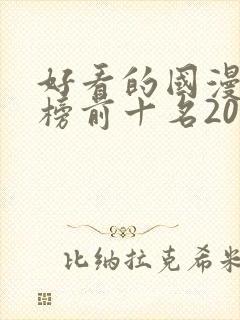 好看的國漫
榜前十名20
比纳拉克希米